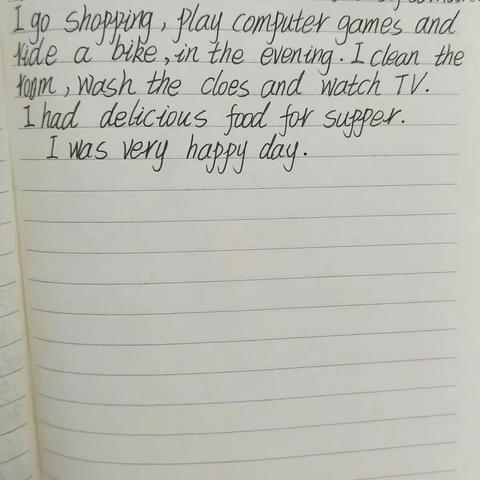 I go shopping, play computer games and
ride a bike, in the evening. I clean the
room, wash the cloes and watch TV.
I had delicious food for supper.
I was very happy day.